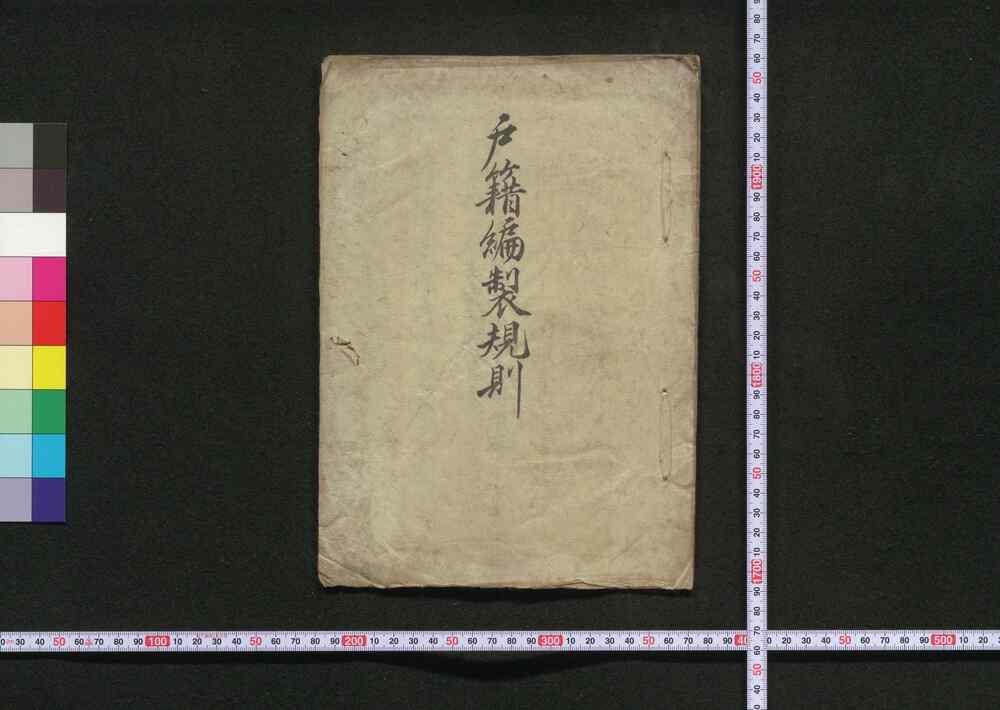 戸籍編製規則